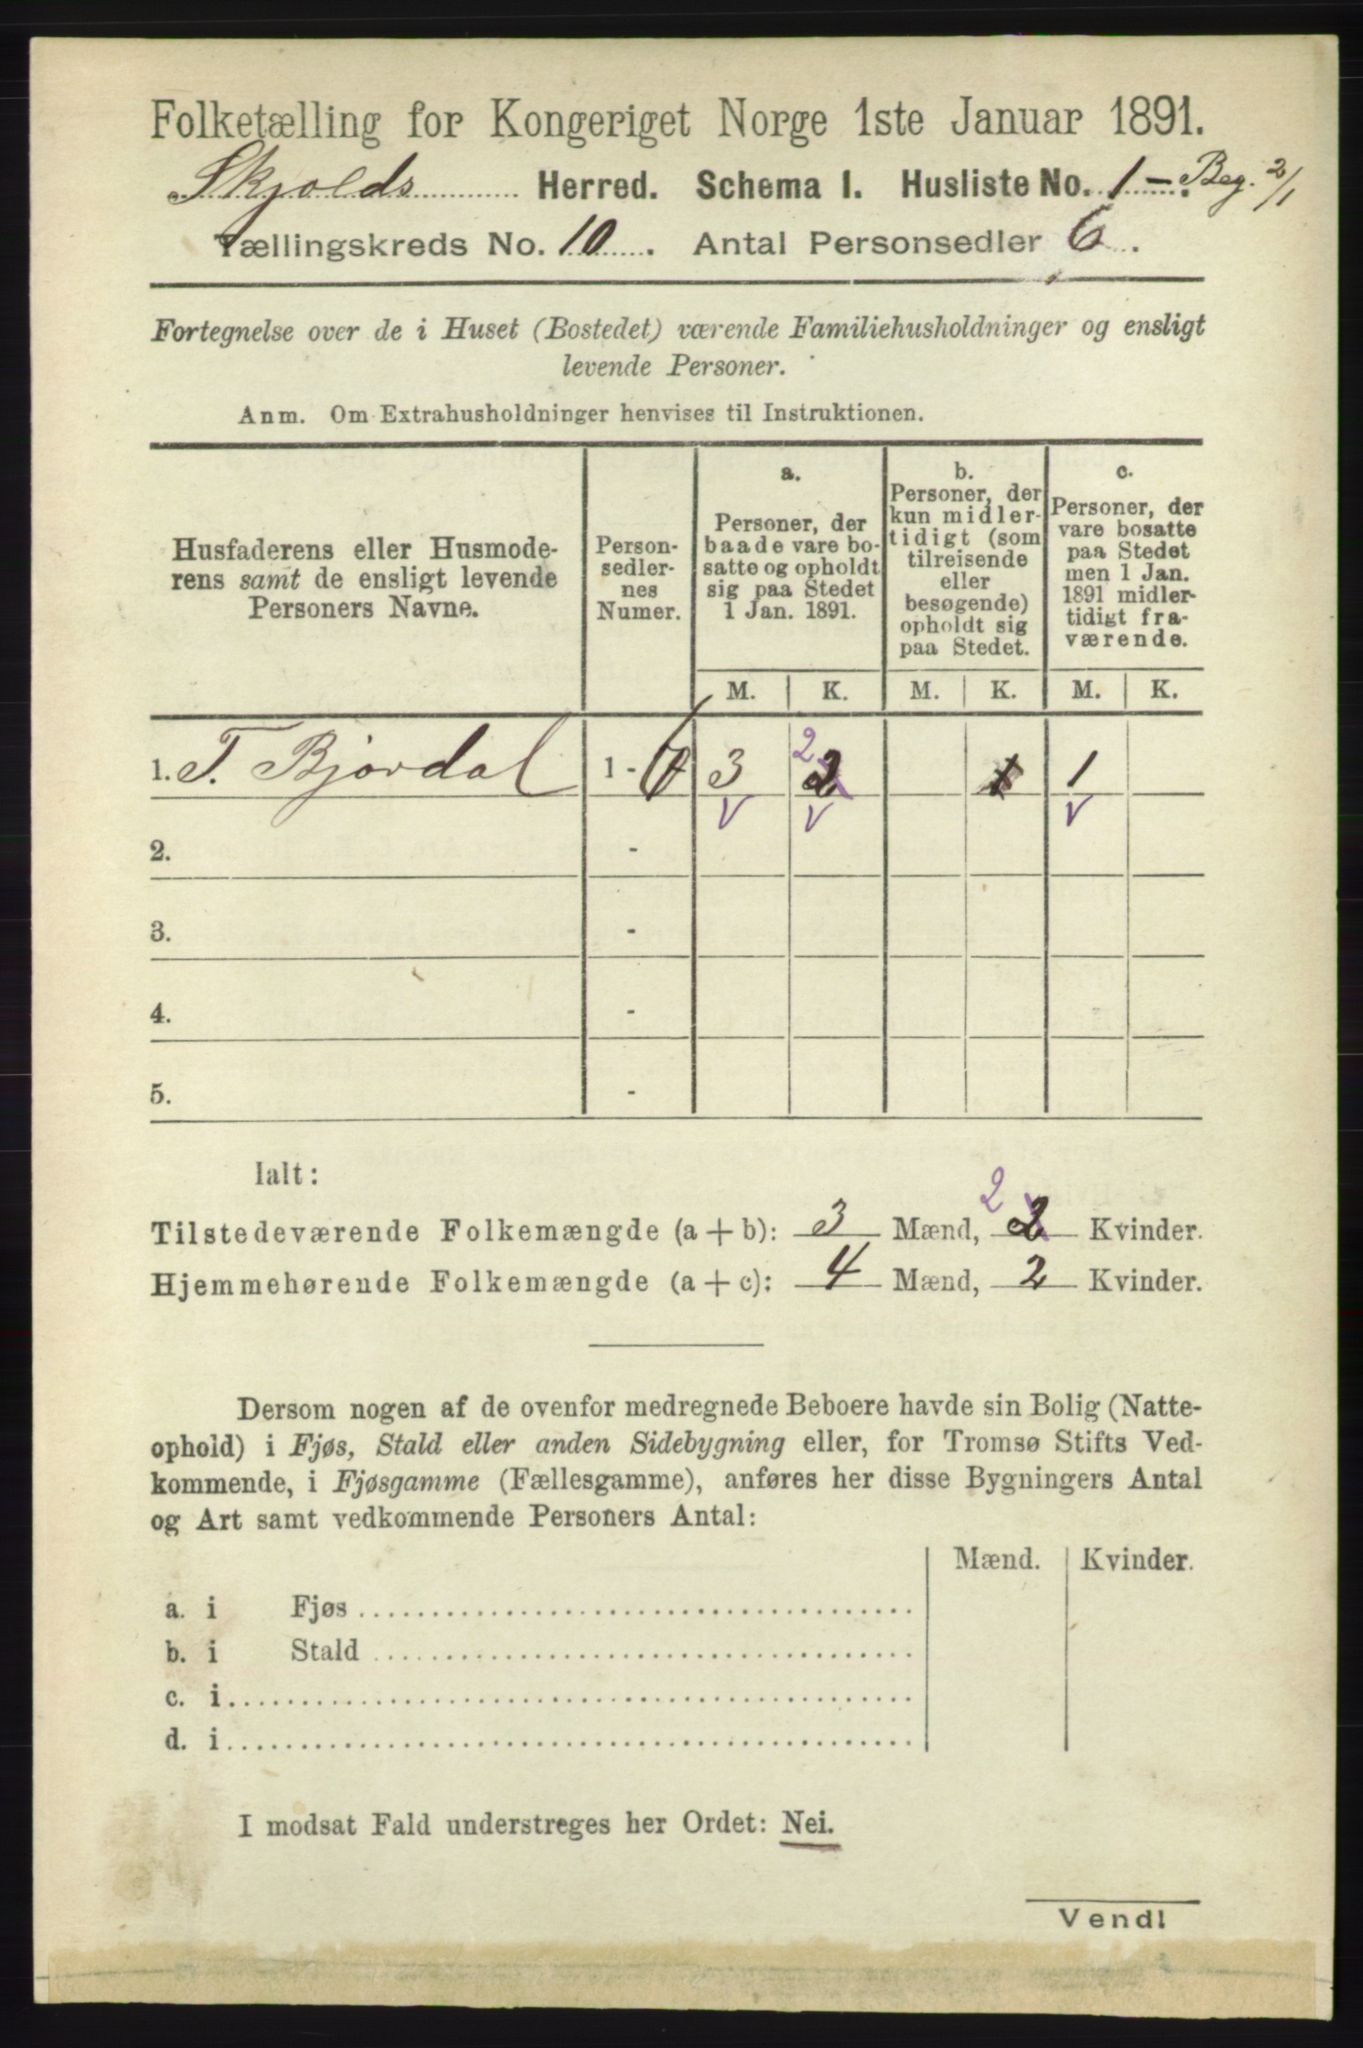 Folketælling for Kongeriget Norge 1ste Januar 1891.
Skjolds Herred. Schema I. Husliste No. 1 -. Beg. 2/1
Tællingskreds No. 10. Antal Personsedler 6.
Fortegnelse over de i Huset (Bostedet) værende Familiehusholdninger og ensligt
levende Personer.
Anm. Om Extrahusholdninger henvises til Instruktionen.
Husfaderens eller Husmode-
rens samt de ensligt levende
Personers Navne.
Person-
sedler-
nes
Numer.
a.
Personer, der
baade vare bo-
satte og opholdt
sig paa Stedet
1 Jan. 1891.
b.
Personer, der
kun midler-
tidigt (som
tilreisende
eller
besøgende)
opholdt sig
paa Stedet.
c.
Personer, der
vare bosatte
paa Stedet
men 1 Jan.
1891 midler-
tidigt fra-
værende.
M. K. M. K. M. K.
1. T. Bjordal 1 - 6 3 2 2 1 1
v v v
2. -
3. -
4. -
5. -
Ialt:
Tilstedeværende Folkemængde (a + b): 3 Mænd, 2 2 Kvinder.
Hjemmehørende Folkemængde (a + c): 4 Mænd, 2 Kvinder.
Dersom nogen af de ovenfor medregnede Beboere havde sin Bolig (Natte-
ophold) i Fjøs, Stald eller anden Sidebygning eller, for Tromsø Stifts Ved-
kommende, i Fjøsgamme (Fællesgamme), anføres her disse Bygningers Antal
og Art samt vedkommende Personers Antal:
Mænd. Kvinder.
a. i Fjøs
b. i Stald
c. i
d. i
I modsat Fald understreges her Ordet: Nei.
Vend!